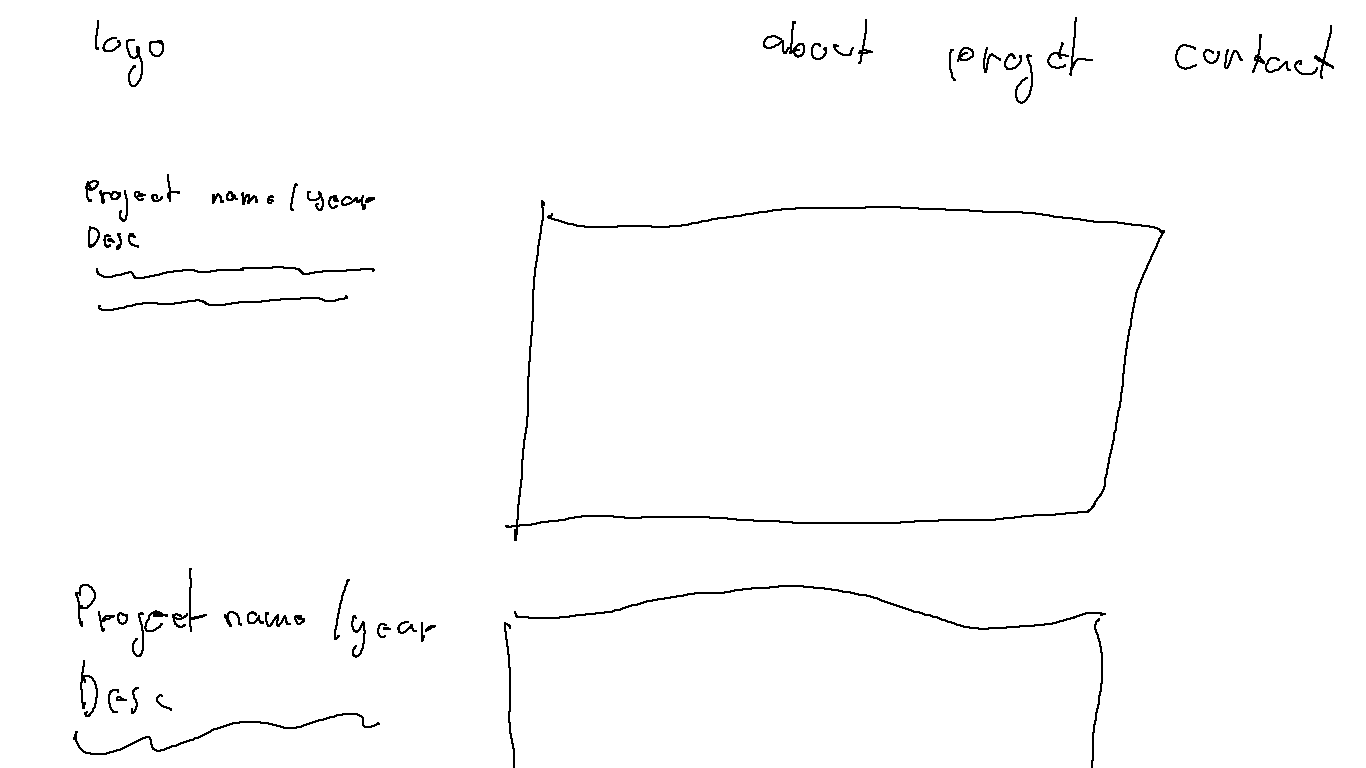 logo about projct contact
Project name/year
Desc
Project name/year
Desc